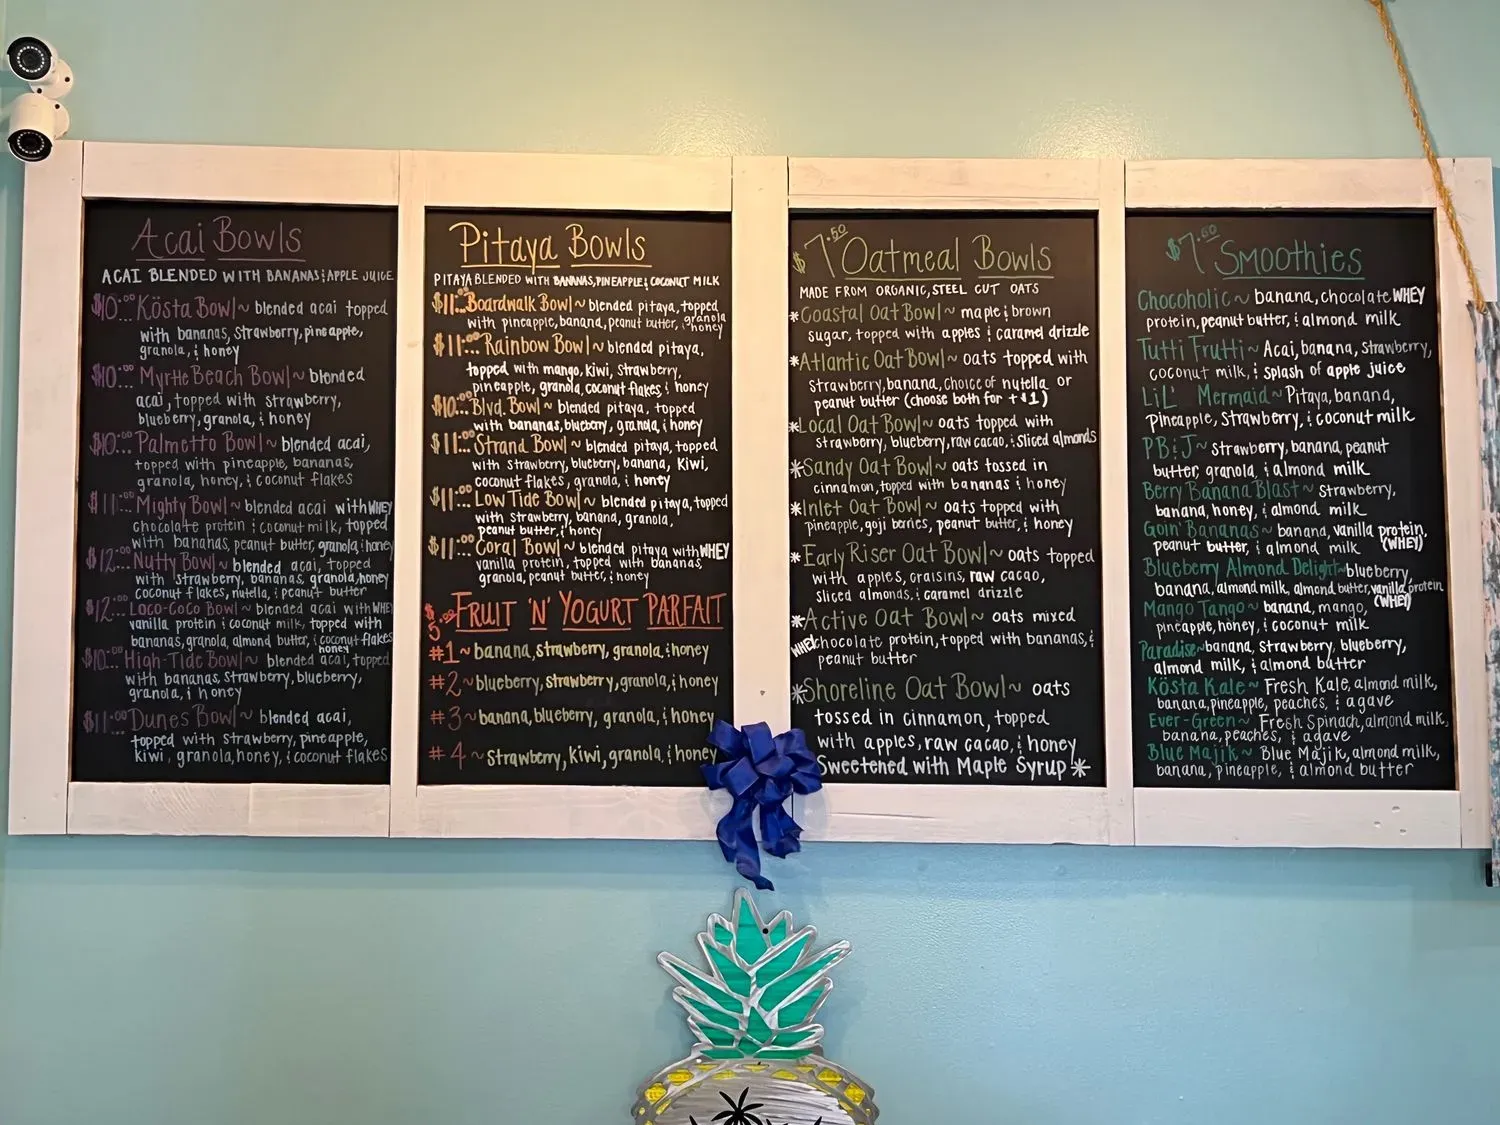 Acai Bowls
ACAI BLENDED WITH BANANAS & APPLE JUICE
$10.00... Kösta Bowl ~ blended acai topped
with bananas, strawberry, pineapple,
granola, & honey
$10.00... Myrtle Beach Bowl ~ blended
acai, topped with strawberry,
blueberry, granola, & honey
$10.00... Palmetto Bowl ~ blended acai,
topped with pineapple, bananas,
granola, honey, & coconut flakes
$11.00... Mighty Bowl ~ blended acai with WHEY
chocolate protein & coconut milk, topped
with bananas, peanut butter, granola & honey
$12.00... Nutty Bowl ~ blended acai, topped
with strawberry, bananas, granola, honey
coconut flakes, nutella, & peanut butter
$12.00... Loco-Coco Bowl ~ blended acai with WHEY
vanilla protein & coconut milk, topped with
bananas, granola, almond butter, & coconut flakes
honey
$10.00... High-Tide Bowl ~ blended acai, topped
with bananas, strawberry, blueberry,
granola, & honey
$11.00 Dunes Bowl ~ blended acai,
topped with strawberry, pineapple,
kiwi, granola, honey, & coconut flakes
Pitaya Bowls
PITAYA BLENDED WITH BANANAS, PINEAPPLE & COCONUT MILK
$11.00... Boardwalk Bowl ~ blended pitaya, topped
with pineapple, banana, peanut butter, granola & honey
$11.00... Rainbow Bowl ~ blended pitaya,
topped with mango, kiwi, strawberry,
pineapple, granola, coconut flakes & honey
$10.00... Blvd. Bowl ~ blended pitaya, topped
with bananas, blueberry, granola, & honey
$11.00... Strand Bowl ~ blended pitaya, topped
with strawberry, blueberry, banana, kiwi,
coconut flakes, granola, & honey
$11.00... Low Tide Bowl ~ blended pitaya, topped
with strawberry, banana, granola,
peanut butter, & honey
$11.00... Coral Bowl ~ blended pitaya with WHEY
vanilla protein, topped with bananas,
granola, peanut butter, & honey
$5.00 FRUIT 'N' YOGURT PARFAIT
#1 ~ banana, strawberry, granola, & honey
#2 ~ blueberry, strawberry, granola, & honey
#3 ~ banana, blueberry, granola, & honey
#4 ~ strawberry, kiwi, granola, & honey
$7.50 Oatmeal Bowls
MADE FROM ORGANIC, STEEL CUT OATS
*Coastal Oat Bowl ~ maple & brown
sugar, topped with apples & caramel drizzle
*Atlantic Oat Bowl ~ oats topped with
strawberry, banana, choice of nutella or
peanut butter (choose both for +$1)
*Local Oat Bowl ~ oats topped with
strawberry, blueberry, raw cacao, & sliced almonds
*Sandy Oat Bowl ~ oats tossed in
cinnamon, topped with bananas & honey
*Inlet Oat Bowl ~ oats topped with
pineapple, goji berries, peanut butter, & honey
*Early Riser Oat Bowl ~ oats topped
with apples, craisins, raw cacao,
sliced almonds, & caramel drizzle
*Active Oat Bowl ~ oats mixed
WHEY chocolate protein, topped with bananas, &
peanut butter
*Shoreline Oat Bowl ~ oats
tossed in cinnamon, topped
with apples, raw cacao, & honey
Sweetened with Maple Syrup *
$7.50 Smoothies
Chocoholic ~ banana, chocolate WHEY
protein, peanut butter, & almond milk
Tutti Frutti ~ Acai, banana, strawberry,
coconut milk, & splash of apple juice
Lil' Mermaid ~ Pitaya, banana,
pineapple, strawberry, & coconut milk
PB & J ~ strawberry, banana, peanut
butter, granola, & almond milk
Berry Banana Blast ~ strawberry,
banana, honey, & almond milk
Goin' Bananas ~ banana, vanilla protein,
peanut butter, & almond milk (WHEY)
Blueberry Almond Delight ~ blueberry,
banana, almond milk, almond butter, vanilla protein
(WHEY)
Mango Tango ~ banana, mango,
pineapple, honey, & coconut milk
Paradise ~ banana, strawberry, blueberry,
almond milk, & almond butter
Kösta Kale ~ Fresh Kale, almond milk,
banana, pineapple, peaches, & agave
Ever-Green ~ Fresh Spinach, almond milk,
banana, peaches, & agave
Blue Majik ~ Blue Majik, almond milk,
banana, pineapple, & almond butter